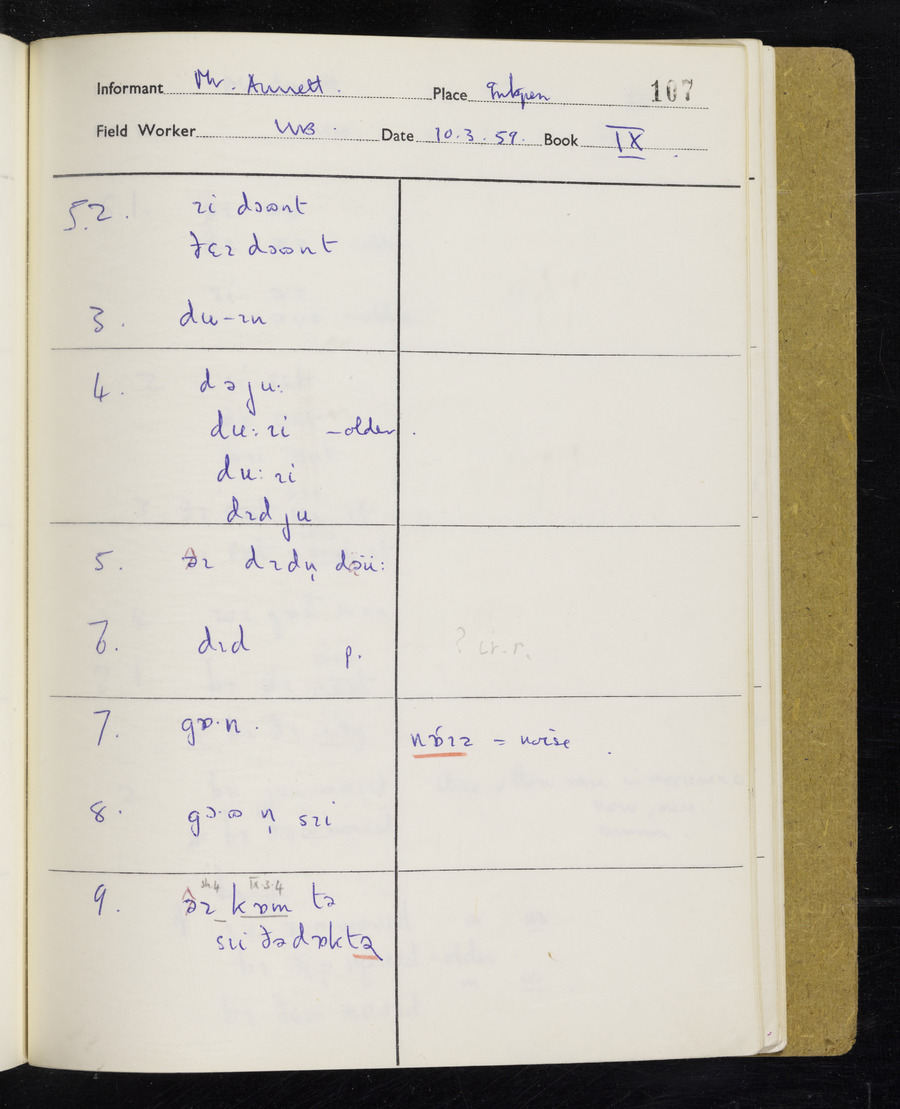 Informant Mr. Annett. Place Inkpen 107
Field Worker WB. Date 10.3.59. Book IX
5.2. ɪi dɔʊnt
ðɛɪ dɔʊnt
3. du-ɪn
4. də ju:
du:ɪi – older.
du:ɪi
dɪd ju
5. əɪ dɪdn̩ dəü:
6. dɪd p. ? ir.r.
7. gɒ·n. nɒ́ɪz = noise.
8. gɔ·ʊ n̩ sɪi
sh4 IX·3·4
9. əɪ kɒm tə
sɪi ðədɒktə